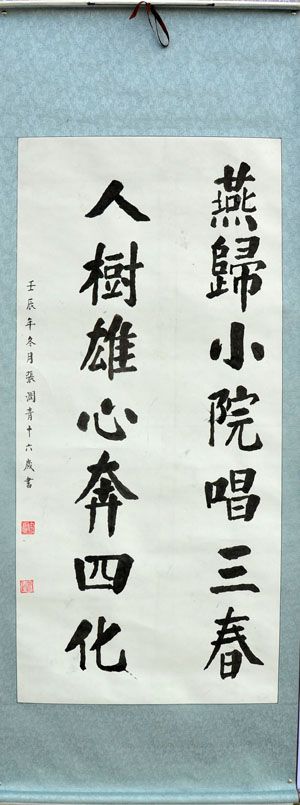 燕歸小院唱三春
人樹雄心奔四化
壬辰年冬月張潤青十六歲書